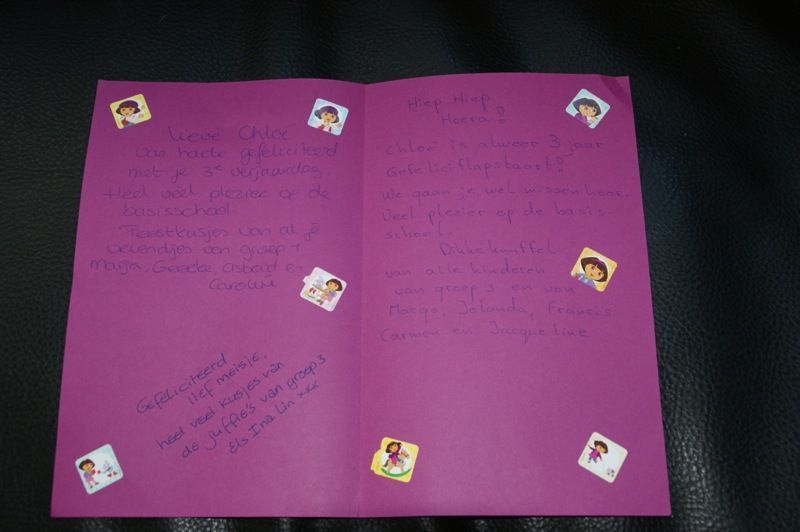 Lieve Chloé
van harte gefeliciteerd
met je 3e verjaardag.
Heel veel plezier op de
basisschool
Feestkusjes van al je
vriendjes van groep 1
Marja, Geseke, en
Caroline
Gefeliciteerd
lief meisje,
heel veel kusjes van
de juffie's van groep 3
Els Ina Lin xxx
Hiep Hiep
Hoera!
Chloé is alweer 3 jaar
Gefeliciflapstaart!
We gaan je wel missen hoor.
Veel plezier op de basis-
school.
Dikke knuffel
van alle kinderen
van groep 3 en van
Margo, Jolanda, Francis
Carmen en Jacqueline